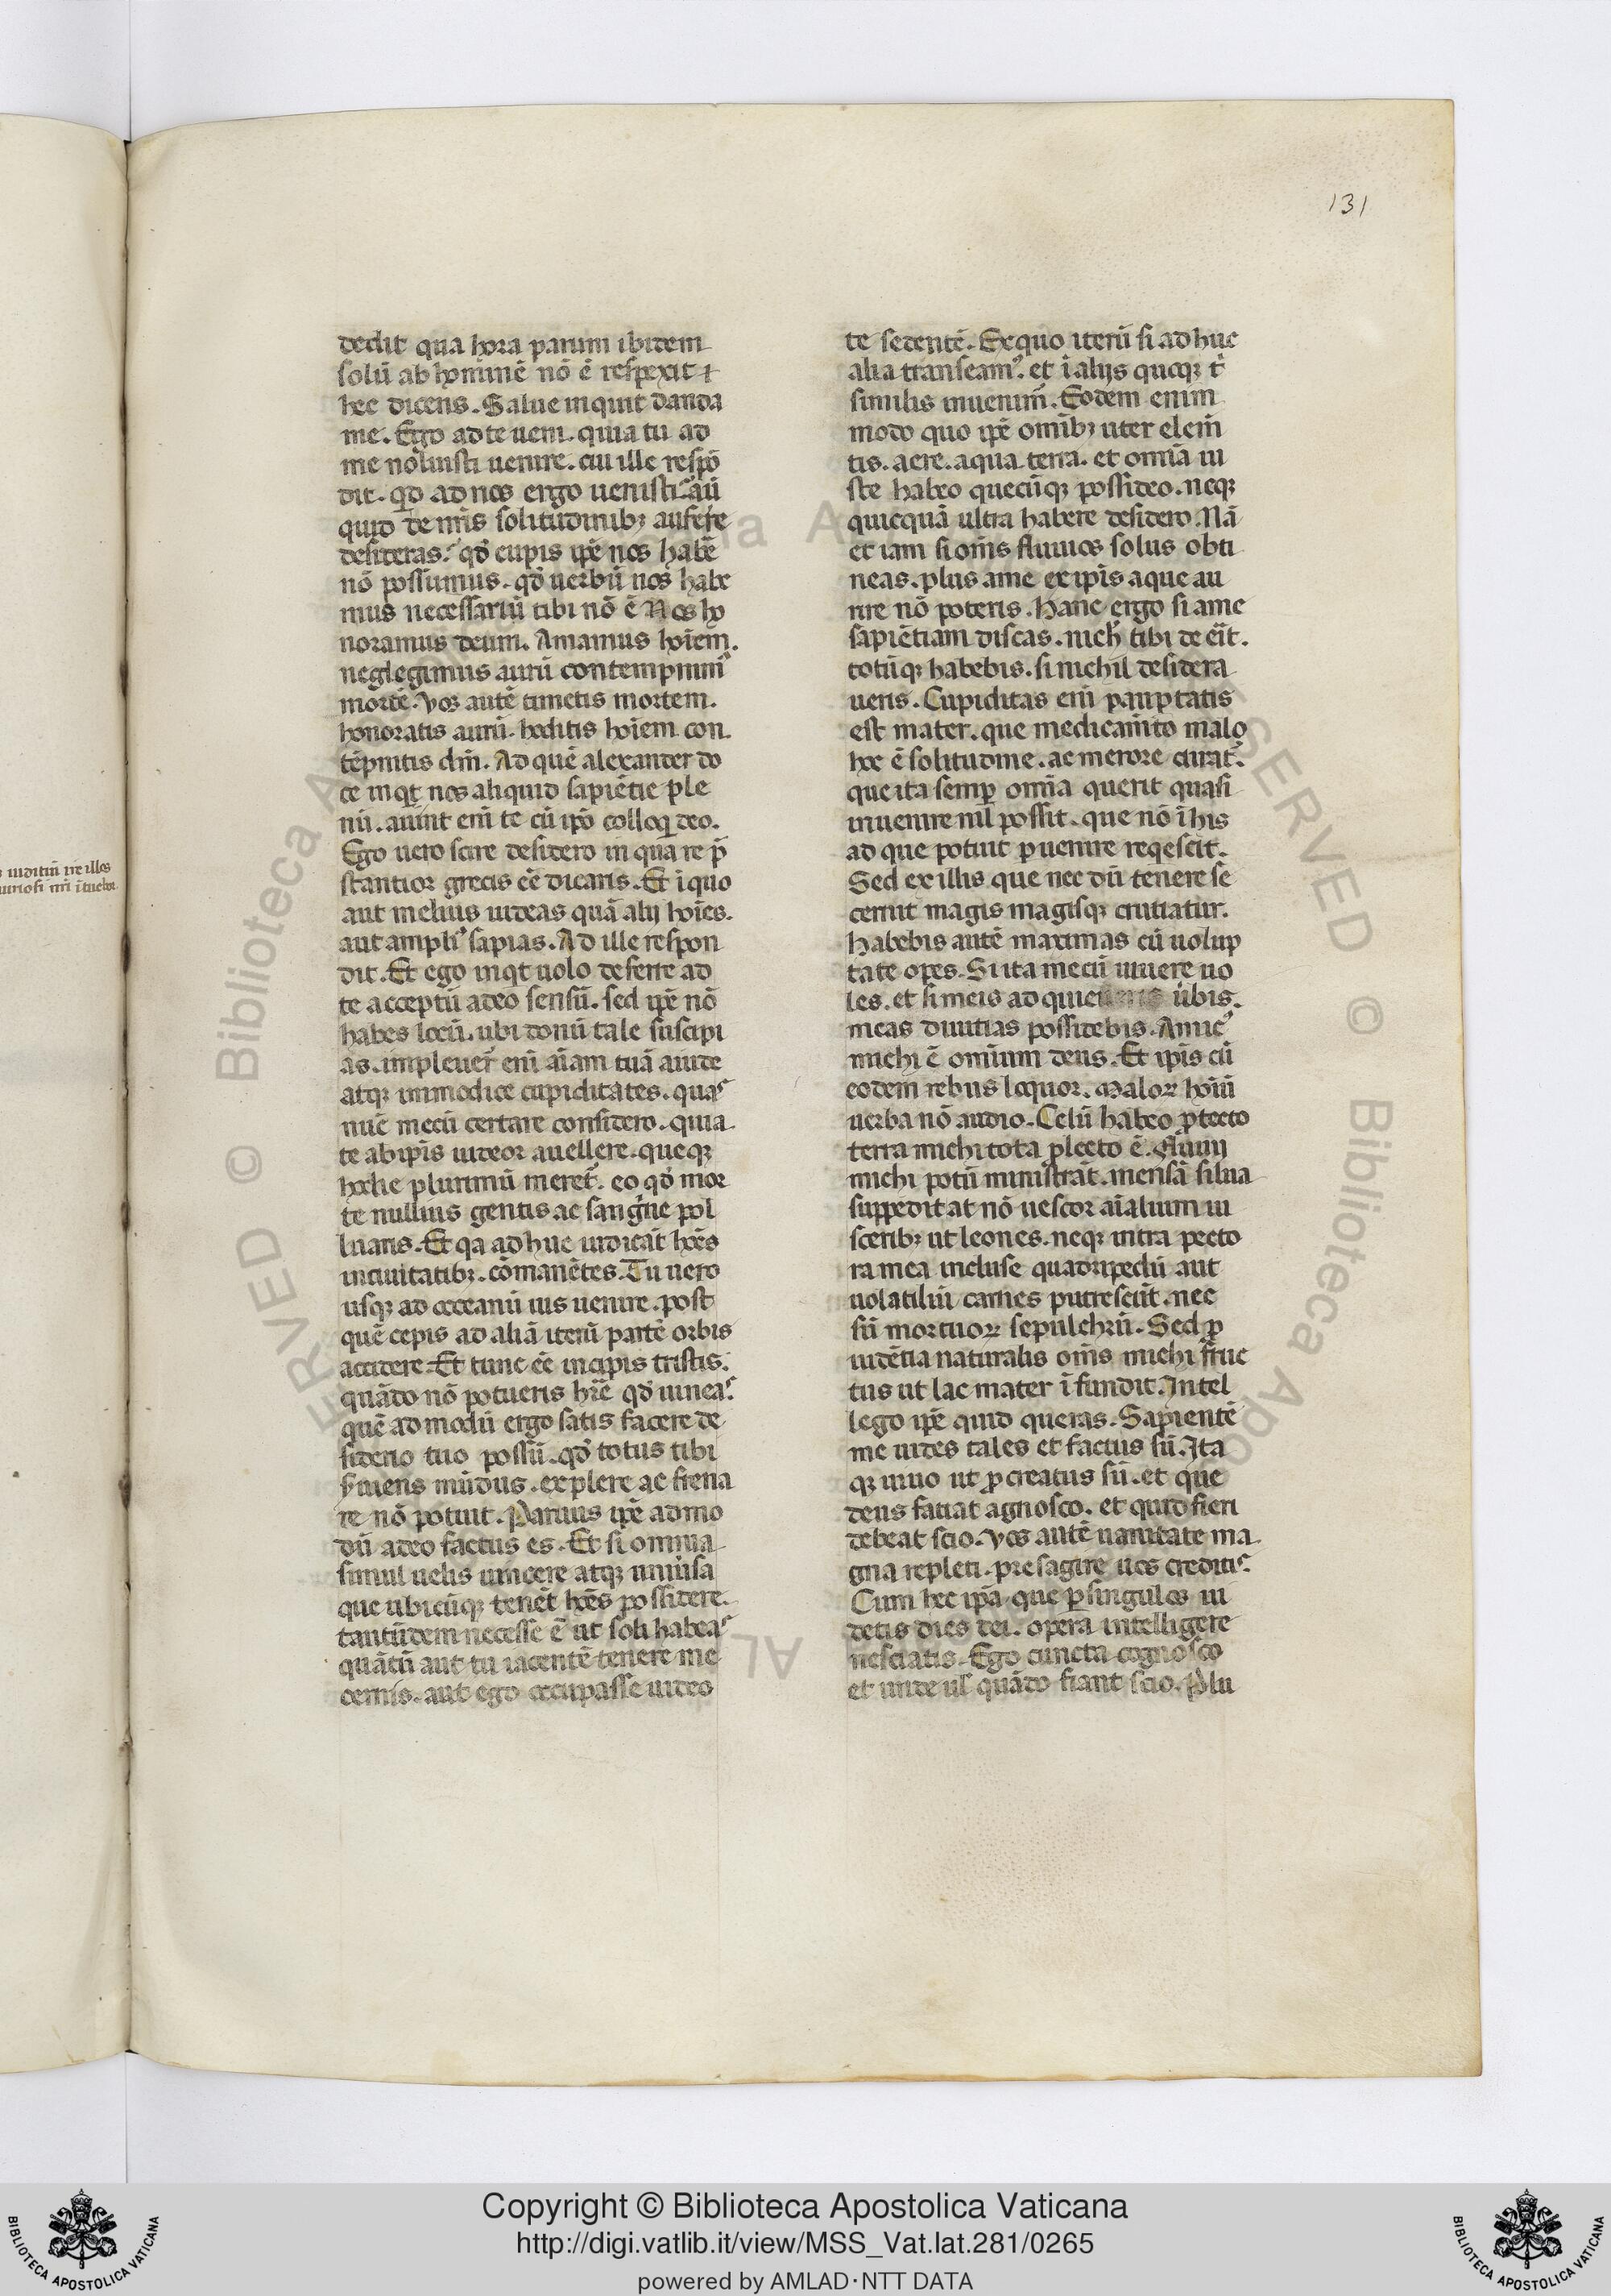 131
dedit qua hora parum ibidem
solū ab hominē nō ē respexit ⁊
hec dicens. Salue inquit danda
me. Ego ad te ueni. quia tu ad
me noluisti uenire. cui ille respō
dit. qd ad nos ergo uenisti. aū
quid de nr̄is solitudinibꝫ auferre
desideras. qd̄ cupis ip̄e nos habē
nō possumus. qd̄ uerbū nos habe
mus necessariū tibi nō ē Nos ho
noramus deum. Amamus hoīem.
neglegimus aurū contempnim᾿
mortē. Vos autē timetis mortem.
honoratis aurū. hoditis hoīem con
tēpnitis dm̄. Ad quē alexander do
ce inqt nos aliquid sapiētie ple
nū. aiunt enī te cū ip̄o colloq̄ deo.
Ego uero scire desidero in qua re p̄
stantior grecis eē dicaris. Et ī quo
aut melius uideas quā alij hoīes.
aut ampli᾿ sapias. Ad ille respon
dit. Et ego inqt uolo deferre ad
te acceptū adeo sensū. sed ip̄e nō
habes locū. ubi donū tale suscipi
as. impleuer̄ enī aīam tuā auide
atqꝫ immodice cupiditates. quas
nūc mecū certare considero. quia
te ab ip̄is uideor auellere. queqꝫ
hodie plurimū meret᾿. eo qd̄ mor
te nullius gentis ac sang̾ne pol
luaris. Et qa ad huc iudicāt hoēs
in ciuitatibꝫ. cōmanētes. Tu uero
usqꝫ ad occeanū uis uenire. post
quē cepis ad aliā iterū partē orbis
accidere. Et tunc eē incipis tristis.
quādo nō potueris hr̄e qd̄ uincas.
quē ad modū ergo satis facere de
siderio tuo possū. qd̄ totus tibi
s̾uiens mūdus. explere ac frena
re nō potuit. Paruus ip̄e admo
dū adeo factus es. Et si omnia
simul uelis uincere atqꝫ uniu̾sa
que ubicūqꝫ tenēt hoēs possidere.
tantūdem necesse ē ut soli habeas
quātū aut tu iacentē tenere me
cernis. aut ego occupasse uideo
te sedentē. Ex quo iterū si ad huc
alia transeam᾿. et ī alijs quoqꝫ t̾
similis inuenim᾿. Eodem enim
modo quo ip̄e omībꝫ uter elem̄
tis. aere. aqua terra. et omīa iu
ste habeo quecūqꝫ possideo. neqꝫ
quicquā ultra habere desidero. Nā
et iam si om̄s fluuios solus obti
neas. plus a me ex ip̄is aque au
rire nō poteris. Hanc ergo si a me
sapiētiam discas. nich̾ tibi de eīt.
totūqꝫ habebis. si nichil desidera
ueris. Cupiditas enī paup̄tatis
est mater. que medicam̄to malo
hoc ē solitudine. ac merore curat᾿.
que ita semp̄ omīa querit quasi
inuenire nīl possit. que nō ī his
ad que potuit p̱uenire reqescit.
Sed ex illis que nec dū tenere se
cernit magis magisqꝫ cruciatur.
Habebis autē maximas cū uolup
tate opes. Si ita mecū uiuere uo
les. et si meis ad quieueris ūbis.
meas diuitias possidebis. Amic᾿
michi ē omnium deus. Et ip̄is cū
eodem rebus loquor. Maloꝝ hoīū
uerba nō audio. Celū habeo p̱tecto
terra michi tota p̱lecto ē. Fluuij
michi potū ministrāt. mensā silua
suppeditat nō uescor aīalium ui
sceribꝫ ut leones. neqꝫ intra pecto
ra mea incluse quadrupedū aut
uolatiliū carnes putrescūt. nec
sū mortuoꝝ sepulchrū. Sed p̱
uidētia naturalis om̄s michi fruc
tus ut lac mater īfundit. Intel
lego ip̄e quid queras. Sapientē
me uides tales et factus sū. Ita
qꝫ uiuo ut p̱creatus sū. et que
deus faciat agnosco. et quid fieri
debeat scio. Vos autē uanitate ma
gna repleti. presagire uos creditis.
Cum hec ip̄a que p̱ singulos ui
detis dies dei. opera intelligere
nesciatis. Ego cuncta cognosco
et unde ul᾿ quādo fiant scio. Plu
Copyright © Biblioteca Apostolica Vaticana
http://digi.vatlib.it/view/MSS_Vat.lat.281/0265
powered by AMLAD·NTT DATA
BIBLIOTECA APOSTOLICA VATICANA
BIBLIOTECA APOSTOLICA VATICANA